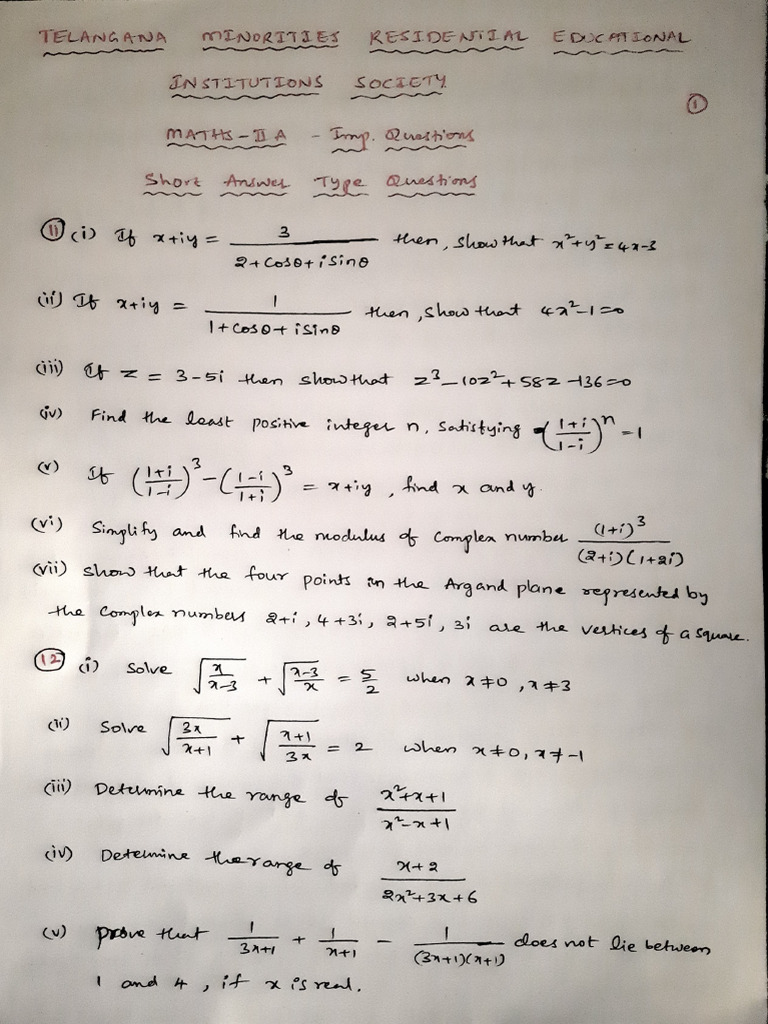 TELANGANA MINORITIES RESIDENTIAL EDUCATIONAL
INSTITUTIONS SOCIETY
①
MATHS-II A - Imp. Questions
Short Answer Type Questions
⑪ (i) If x+iy = 3/(2+cosθ+isinθ) then, show that x²+y²=4x-3
(ii) If x+iy = 1/(1+cosθ+isinθ) then, show that 4x²-1=0
(iii) If z = 3-5i then show that z³-10z²+58z-136=0
(iv) Find the least positive integer n, satisfying ((1+i)/(1-i))ⁿ = 1
(v) If ((1+i)/(1-i))³ - ((1-i)/(1+i))³ = x+iy, find x and y.
(vi) Simplify and find the modulus of complex number (1+i)³/((2+i)(1+2i))
(vii) Show that the four points in the Argand plane represented by
the complex numbers 2+i, 4+3i, 2+5i, 3i are the vertices of a square.
⑫ (i) Solve √(x/(x-3)) + √((x-3)/x) = 5/2 when x≠0, x≠3
(ii) Solve √(3x/(x+1)) + √((x+1)/3x) = 2 when x≠0, x≠-1
(iii) Determine the range of (x²+x+1)/(x²-x+1)
(iv) Determine the range of (x+2)/(2x²+3x+6)
(v) prove that 1/(3x+1) + 1/(x+1) - 1/((3x+1)(x+1)) does not lie between
1 and 4, if x is real.